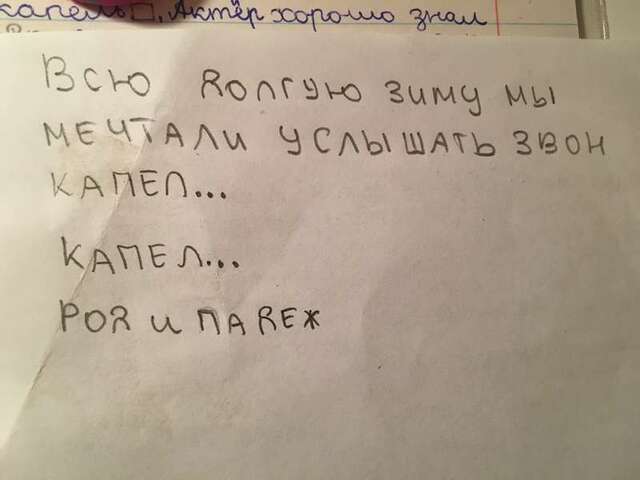 капель□. Актёр хорошо знал
ВСЮ ДОЛГУЮ ЗИМУ МЫ
МЕЧТАЛИ УСЛЫШАТЬ ЗВОН
КАПЕЛ...
КАПЕЛ...
РОД И ПАДЕЖ